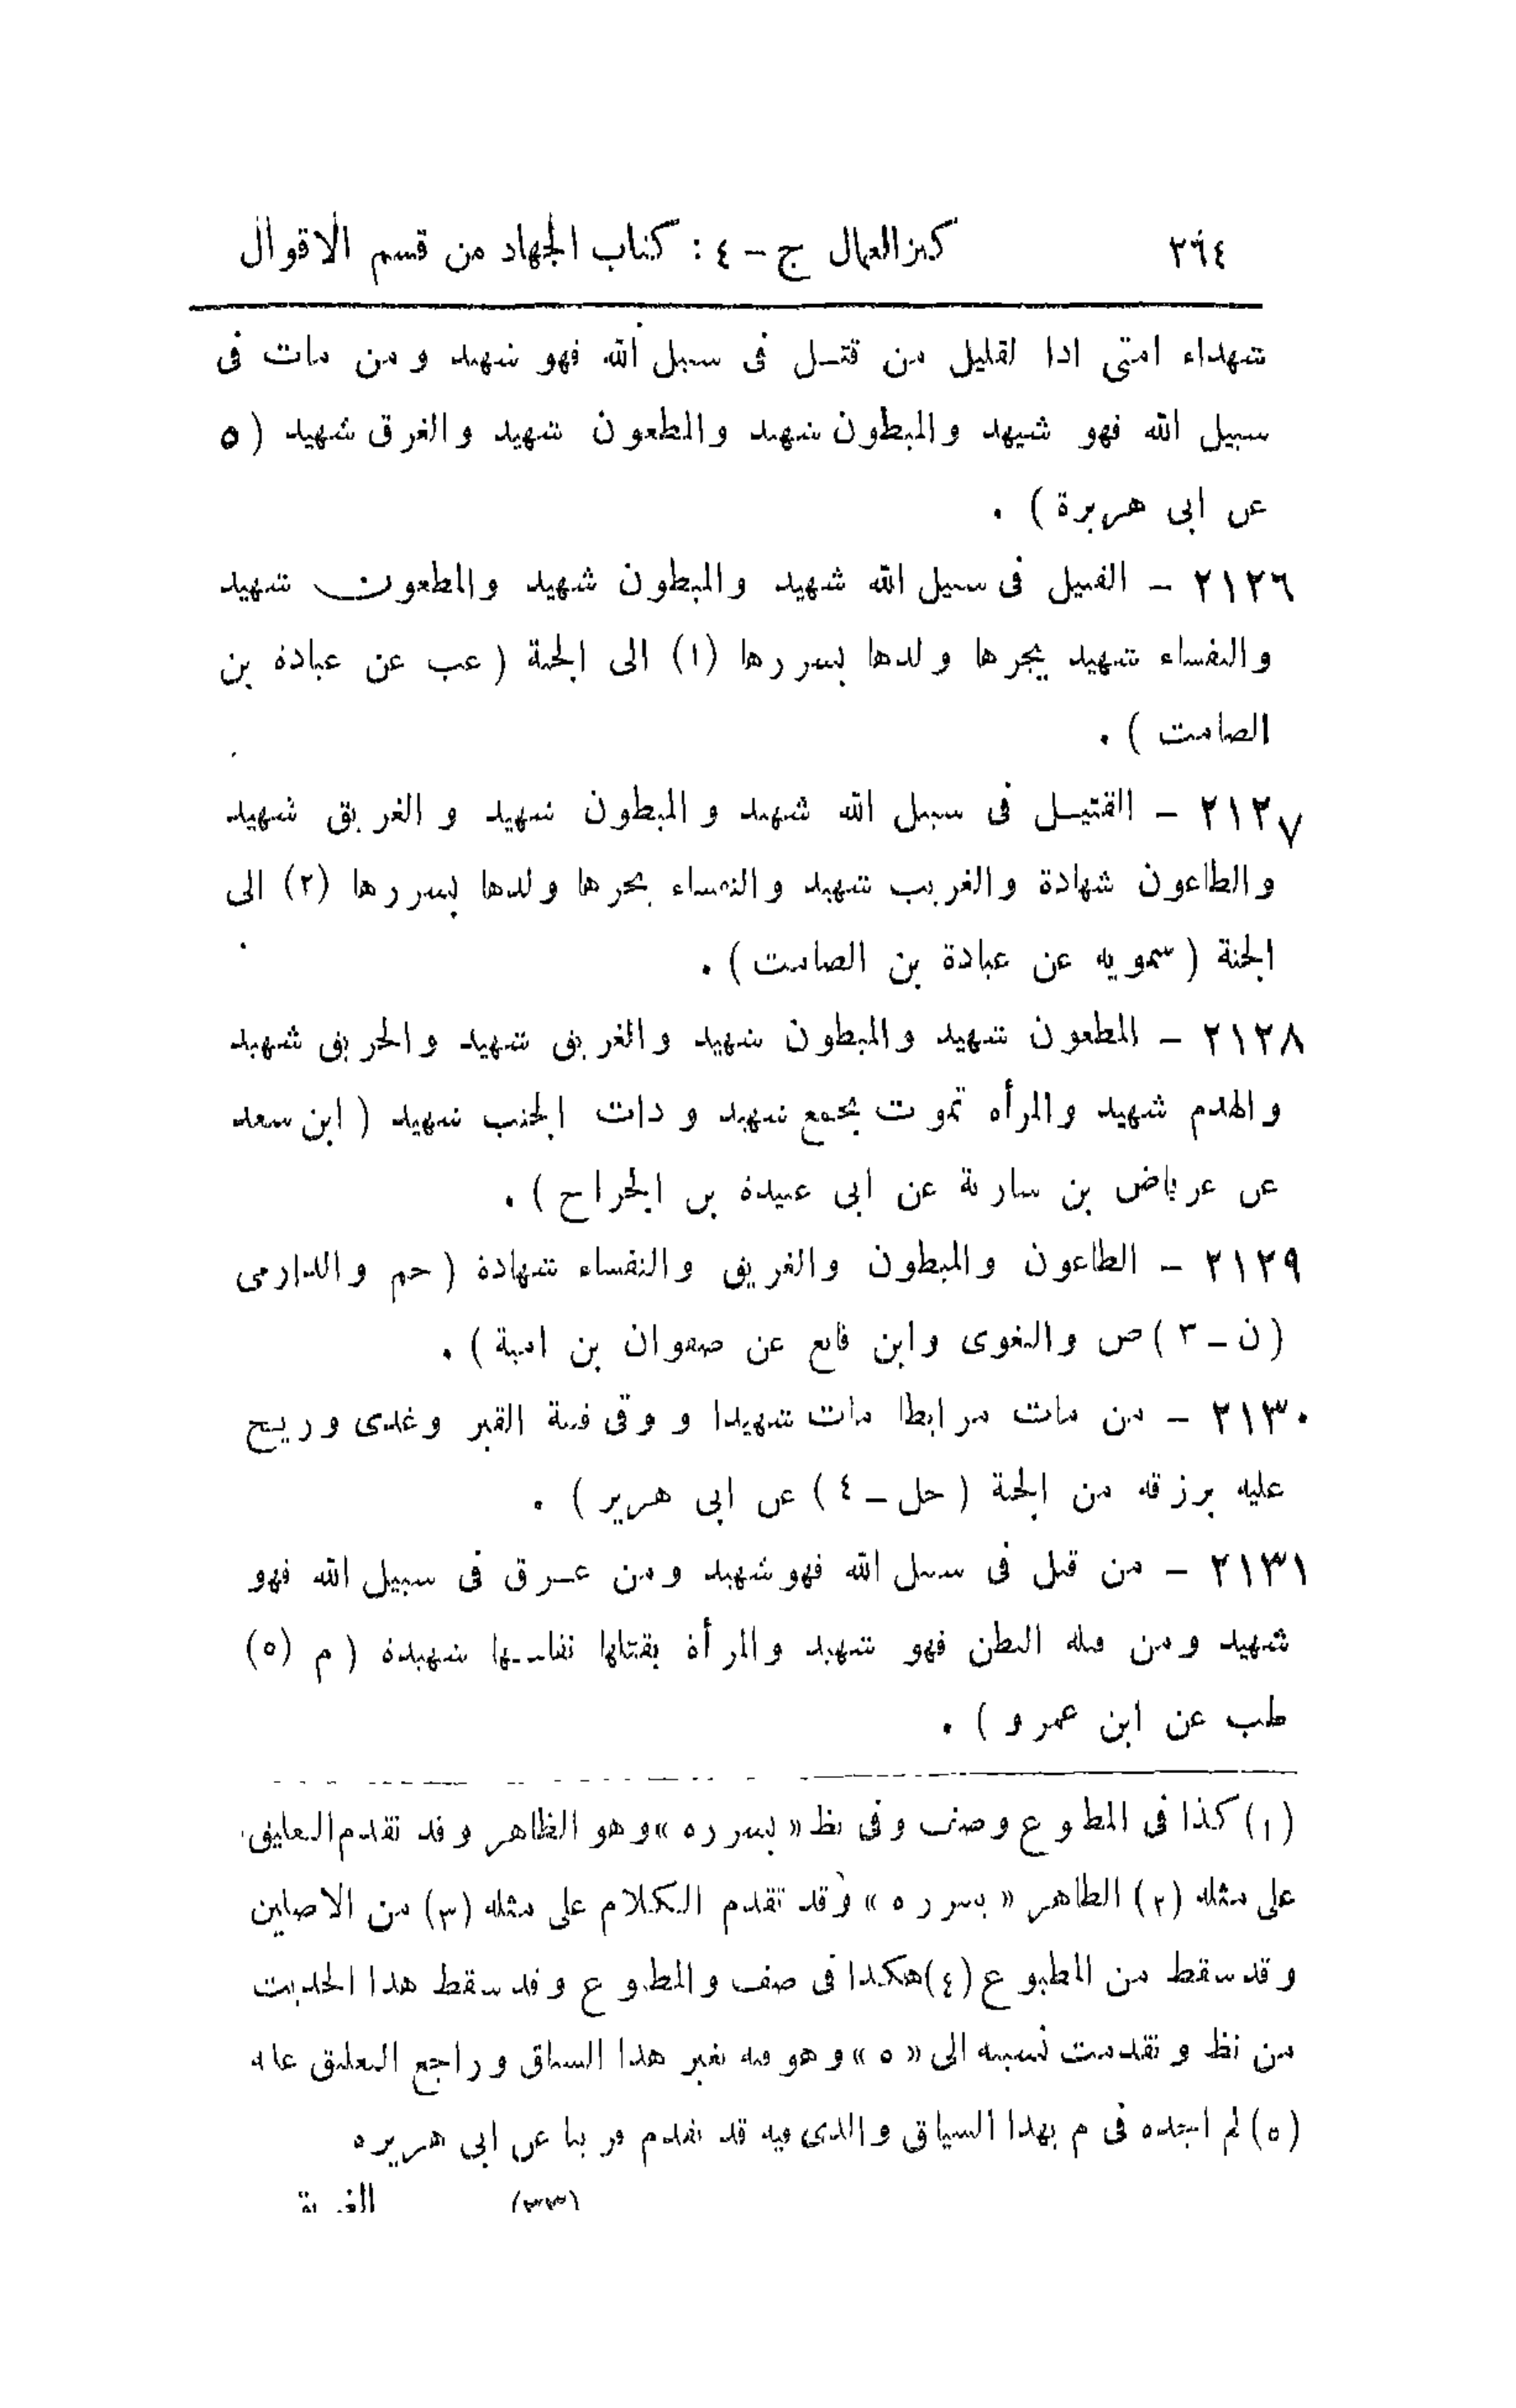 ٢٦٤ كنز العمال ج - ٤ : كتاب الجهاد من قسم الاقوال
شهداء امتى اذا لقليل من قتل فى سبيل الله فهو شهيد ومن مات فى
سبيل الله فهو شهيد والمبطون شهيد والمطعون شهيد والغرق شهيد ( ه
عن ابى هريرة ) .
٢١٢٦ - القتيل فى سبيل الله شهيد والمبطون شهيد والمطعون شهيد
والنفساء شهيد يجرها ولدها بسررها (١) الى الجنة ( عب عن عبادة بن
الصامت ) .
٢١٢٧ - القتيل فى سبيل الله شهيد والمبطون شهيد والغريق شهيد
والطاعون شهادة والغريب شهيد والنفساء يجرها ولدها بسررها (٢) الى
الجنة ( سمويه عن عبادة بن الصامت ) .
٢١٢٨ - المطعون شهيد والمبطون شهيد والغريق شهيد والحريق شهيد
والهدم شهيد والمرأة تموت بجمع شهيد وذات الجنب شهيد ( ابن سعد
عن عرباض بن سارية عن ابى عبيدة بن الجراح ) .
٢١٢٩ - الطاعون والمبطون والغريق والنفساء شهادة ( حم والدارمى
( ن - ٣ ) ص والبغوى وابن قانع عن صفوان بن امية ) .
٢١٣٠ - من مات مرابطا مات شهيدا ووقى فتنة القبر وغدى وريح
عليه برزقه من الجنة ( حل - ٤ ) عن ابى هرير ) .
٢١٣١ - من قتل فى سبيل الله فهو شهيد ومن غرق فى سبيل الله فهو
شهيد ومن قتله البطن فهو شهيد والمرأة يقتلها نفاسها شهيدة ( م (٥)
طب عن ابن عمرو ) .
(١) كذا فى المطبوع وصف وفى نظ « بسرره » وهو الظاهر وقد تقدم التعليق
على مثله (٢) الظاهر « بسرره » وقد تقدم الكلام على مثله (٣) من الاصلين
وقد سقط من المطبوع (٤) هكذا فى صف والمطبوع وقد سقط هذا الحديث
من نظ وتقدمت نسبته الى « ه » وهو فيه بغير هذا السياق وراجع التعليق عليه
(٥) لم اجده فى م بهذا السياق والذى فيه قد تقدم قريبا عن ابى هريرة
(٣٣)